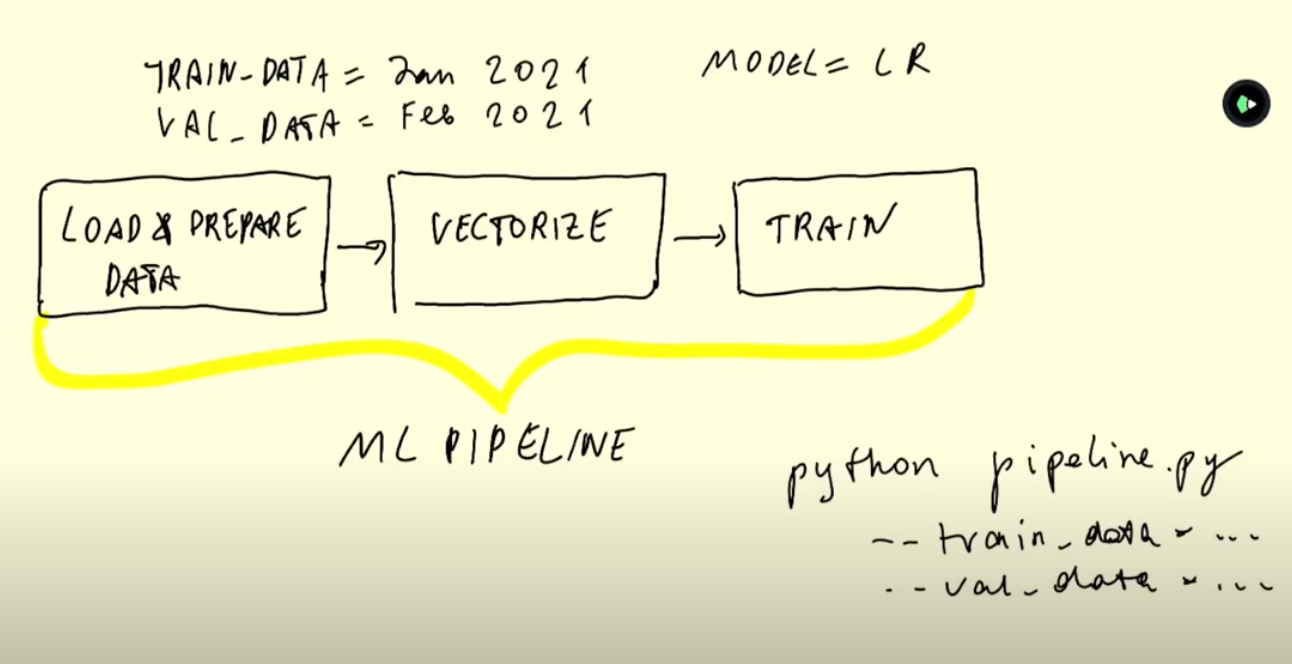 TRAIN_DATA = Jan 2021
VAL_DATA = Feb 2021
MODEL = LR
LOAD & PREPARE
DATA
VECTORIZE
TRAIN
ML PIPELINE
python pipeline.py
--train_data = ...
--val_data = ...